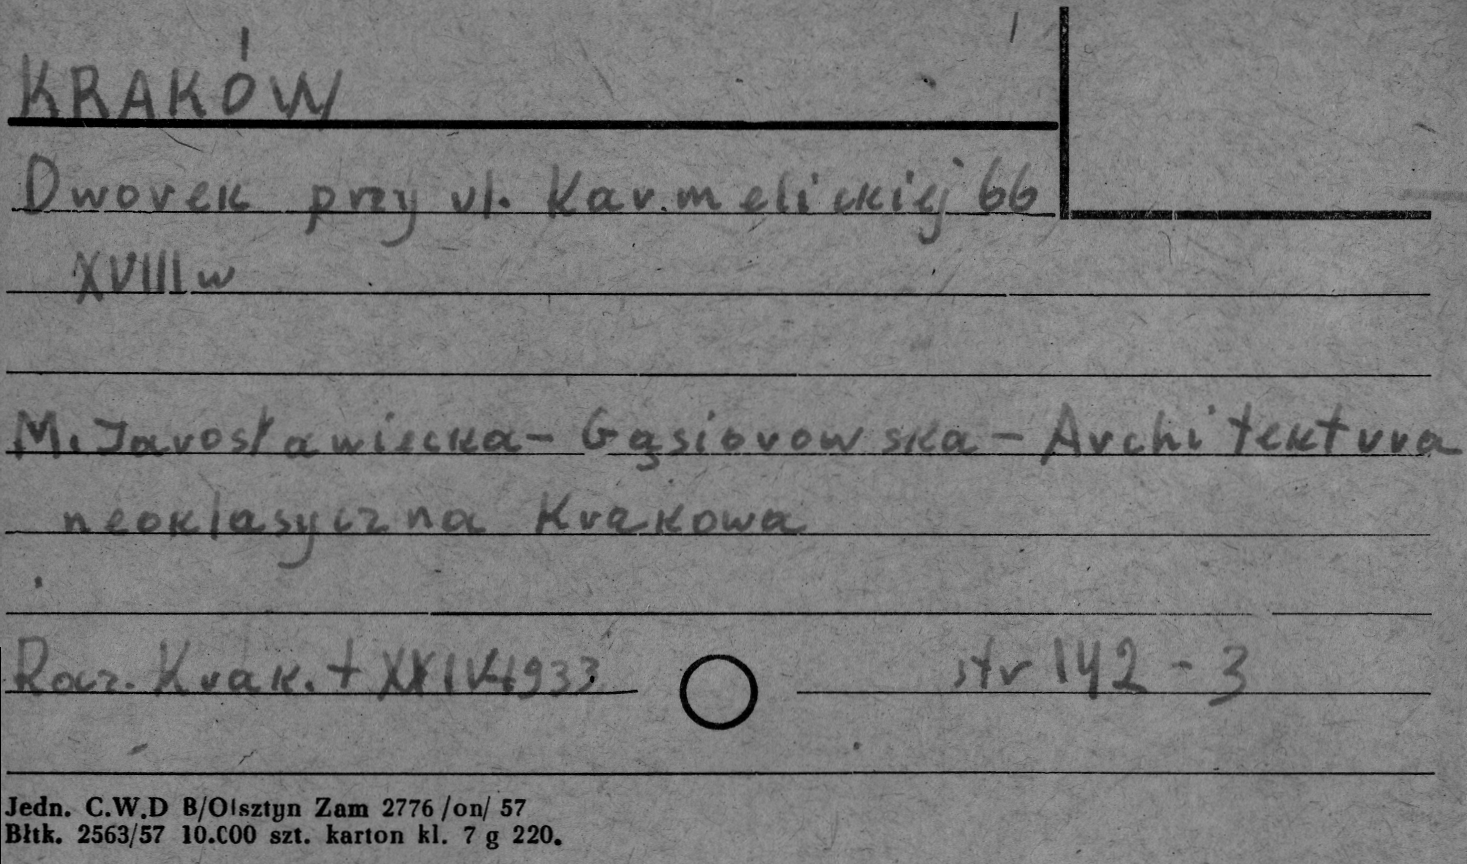 KRAKÓW
Dworek przy ul. Karmelickiej 66
XVIII w
M. Jarosławiecka - Gąsiorowska - Architektura
neoklasyczna Krakowa
Rocz. Krak. t XXIV 1933 str 142 - 3
Jedn. C.W.D B/Olsztyn Zam 2776 /on/ 57
Błtk. 2563/57 10.000 szt. karton kl. 7 g 220.